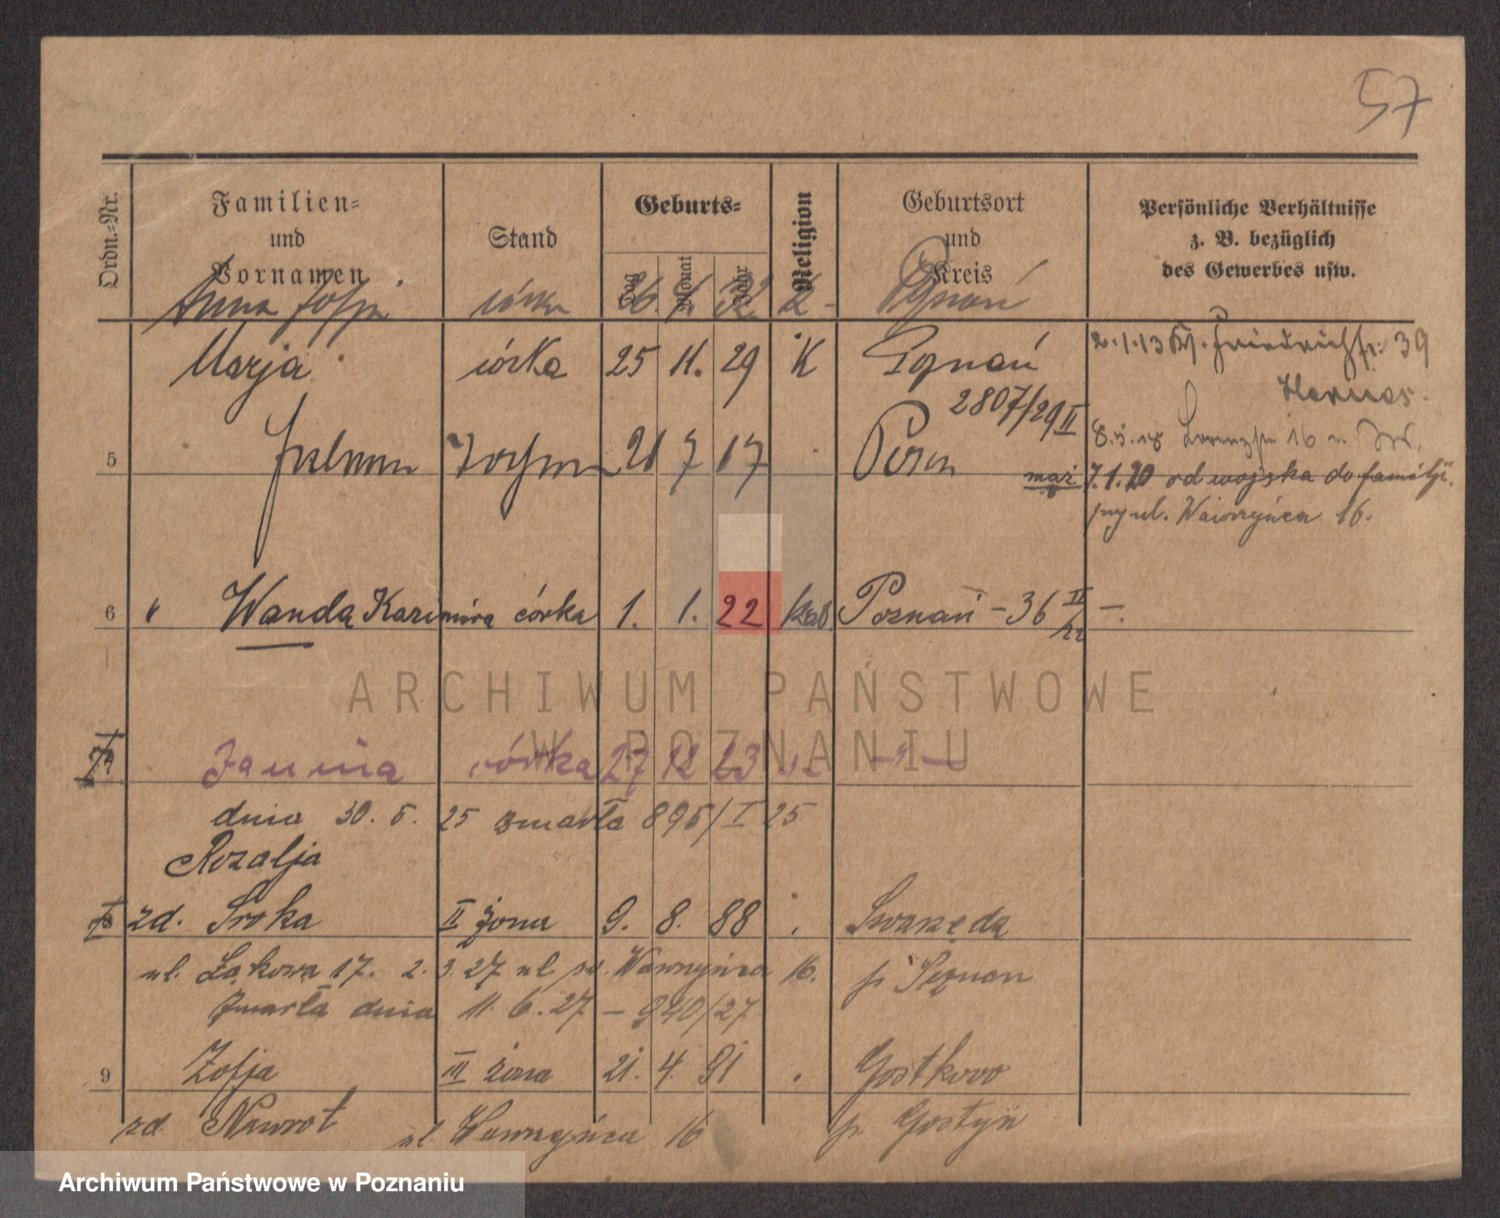 57
Ordn.-Nr.
Familien-
und
Vornamen
Stand
Geburts-
Tag
Monat
Jahr
Religion
Geburtsort
und
Kreis
Persönliche Verhältnisse
z. B. bezüglich
des Gewerbes usw.
Anna Zofja córka 26. 32 Poznań
Marja córka 25 11. 29 K Poznań
2807/29 II
2.1.13 Friedrichstr. 39
5 21 7 17 Posen
8.5.18 16
mąż 7.1.20 od wojska do familji
przy ul. Wawrzyńca 16.
6 " Wanda Kazimira córka 1. 1. 22 kat. Poznań – 36 II/22 –
Janina córka 27 12 23
dnia 30. 5. 25 zmarła 895/I 25
Rozalja
zd. Sroka II żona 9. 8. 88 . Swarzęda
ul. Łąkowa 17. 2.3.27 ul. św. Wawrzyńca 16. p. Poznań
zmarła dnia 11.6.27 – 940/27
9 Zofja III żona 21. 4. 91 . Gostkowo
zd Nawrot ul. Wawrzyńca 16 p. Gostyń
ARCHIWUM PAŃSTWOWE
W POZNANIU
Archiwum Państwowe w Poznaniu